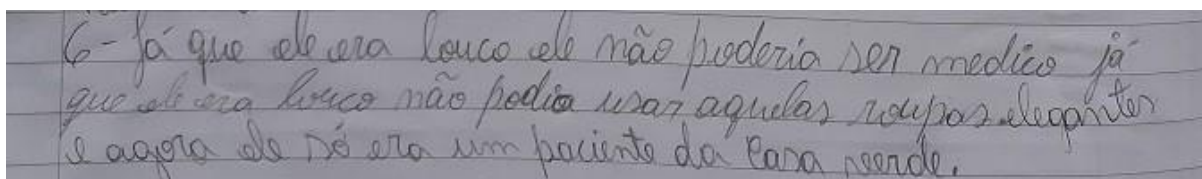 6- Já que ele era louco ele não poderia ser medico já
que ele era louco não podia usar aquelas roupas elegantes
e agora ele só era um paciente da Casa verde.